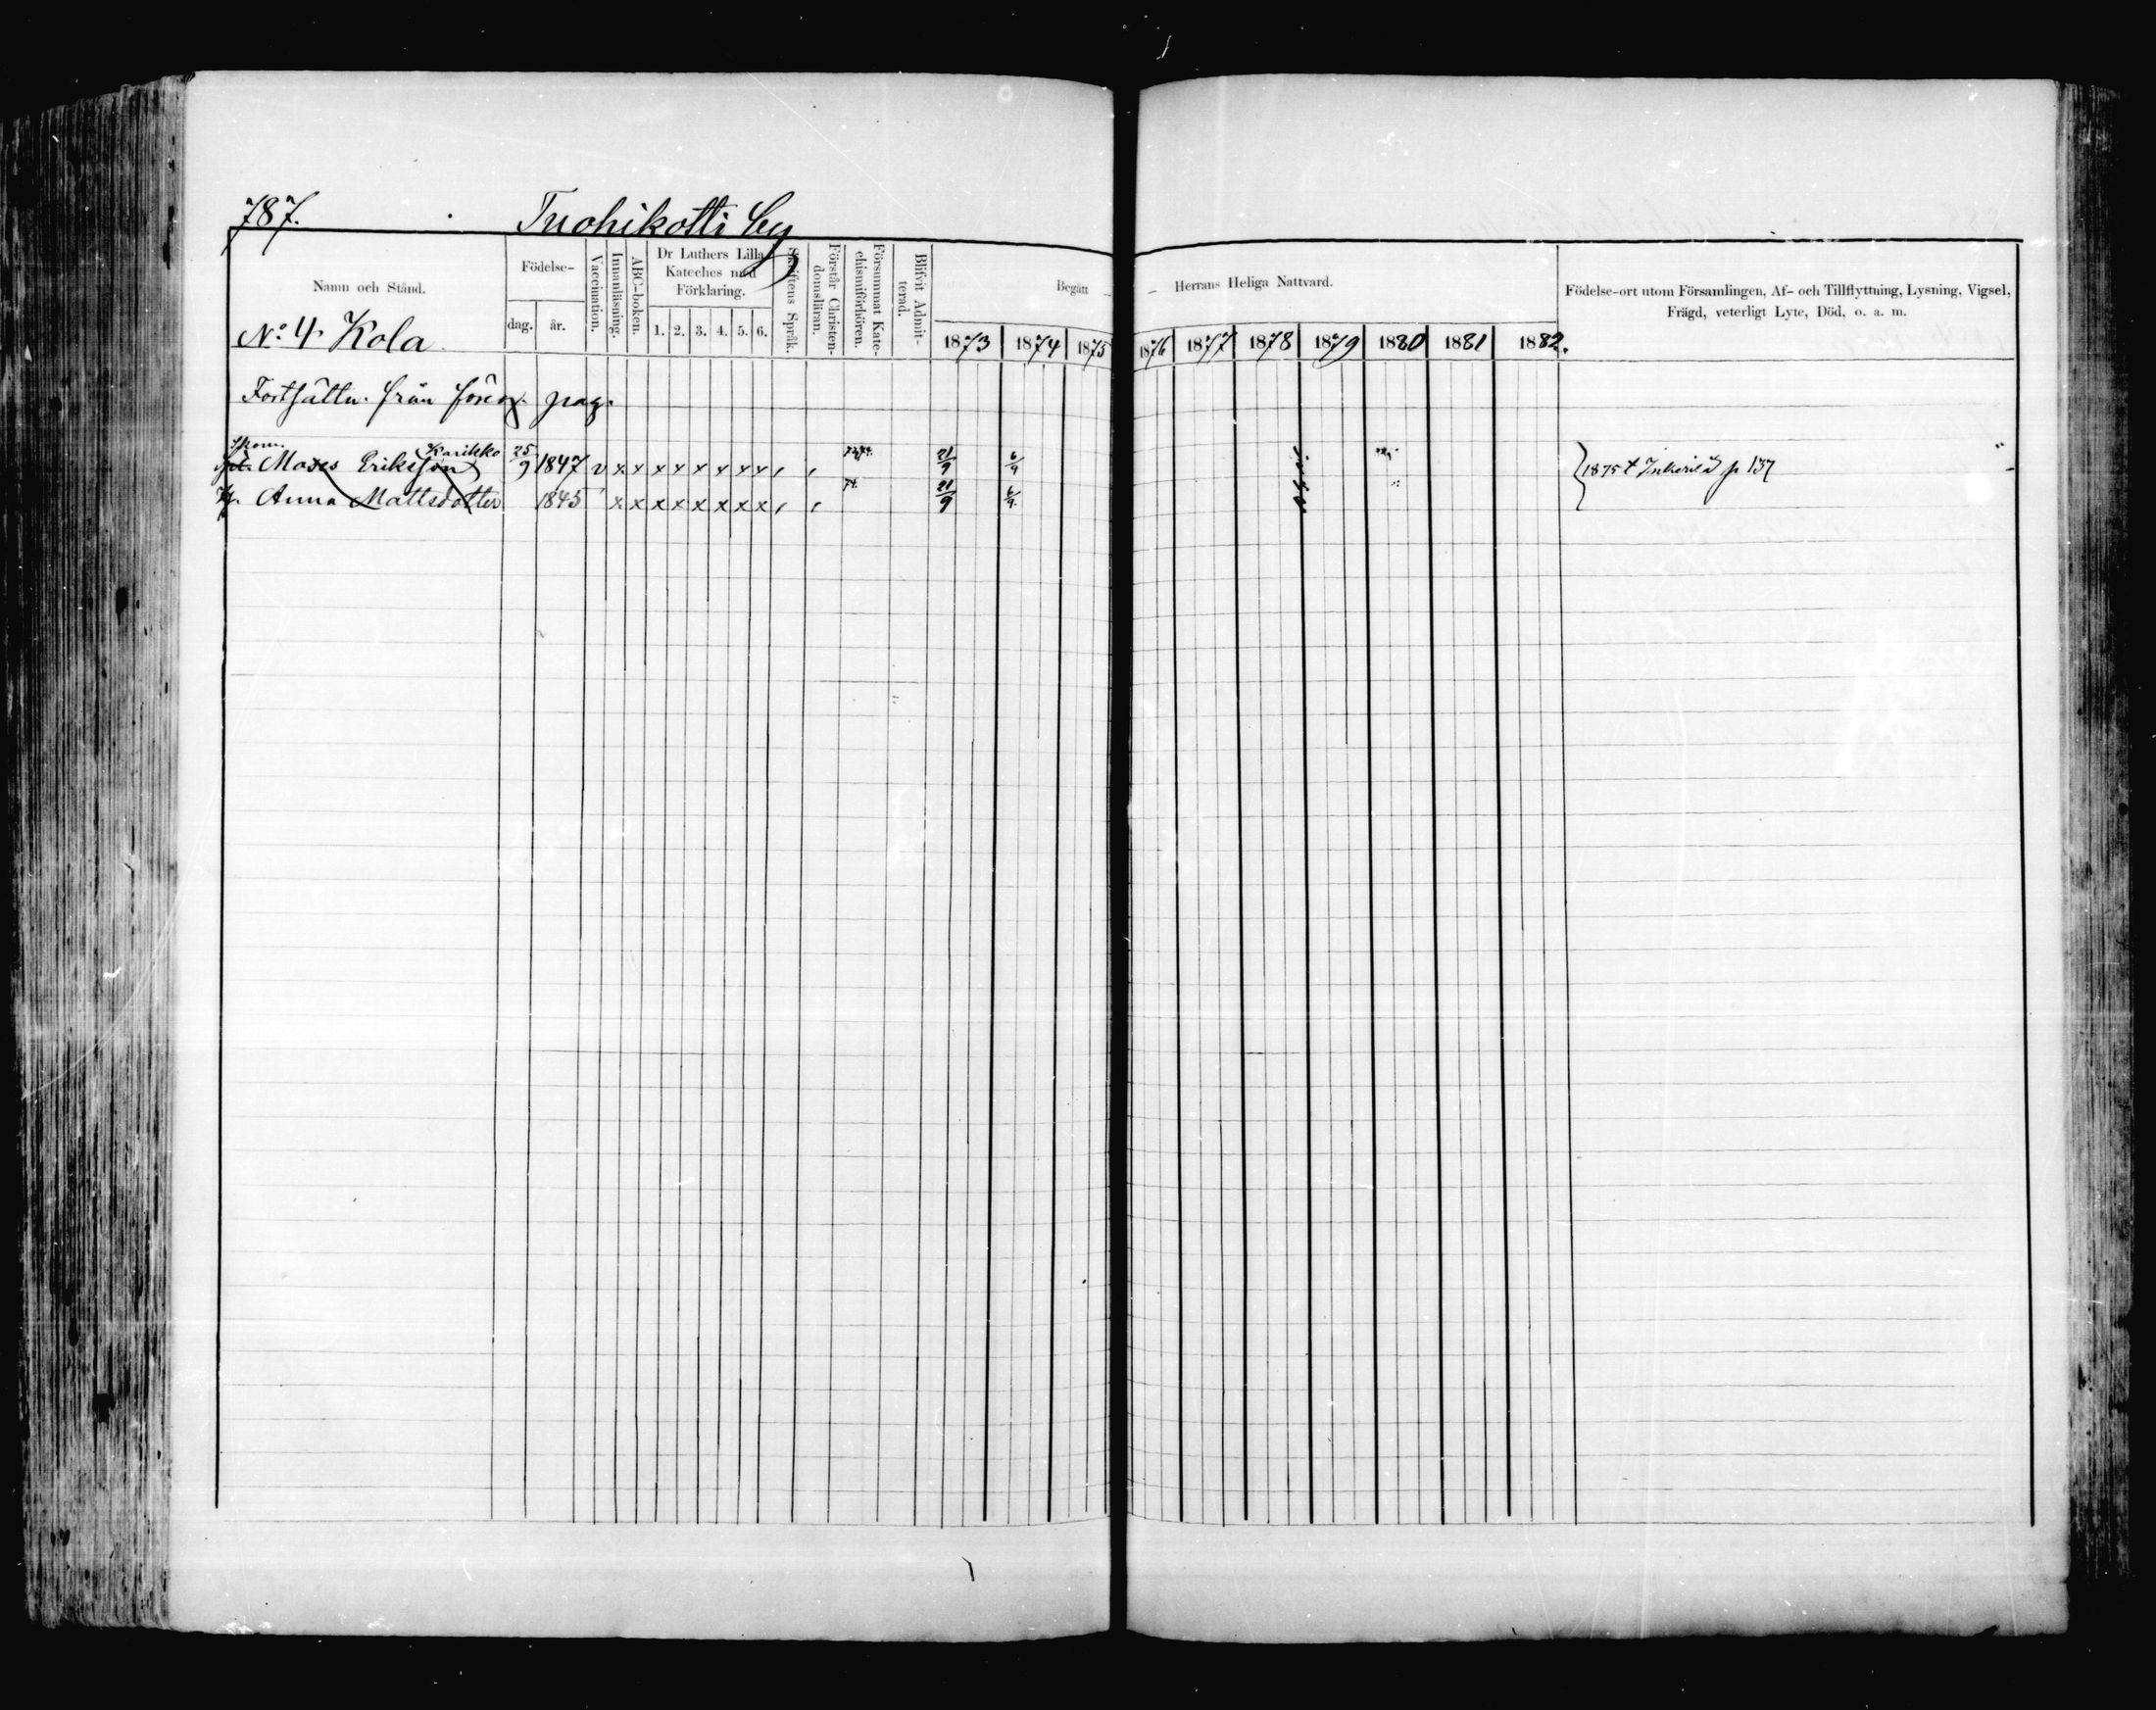 787. Tuohikotti by
Namn och Stånd.
Födelse-
dag. år.
Vaccination.
Innanläsning.
ABC-boken.
Dr Luthers Lilla
Kateches med
Förklaring.
1. 2. 3. 4. 5. 6.
Skriftens Språk.
Förstår Christen-
domsläran.
Försummat Kate-
chismiförhören.
Blifvit Admit-
terad.
Begått - - Herrans Heliga Nattvard.
1873 1874 1875 1876 1877 1878 1879 1880 1881 1882.
Födelse-ort utom Församlingen, Af- och Tillflyttning, Lysning, Vigsel,
Frägd, veterligt Lyte, Död, o. a. m.
No: 4. Kola
Fortsättn. från föreg. pag.
Karikko
Moses Eriksson 25/9 1847 v x x x x x x x x 21/9 6/9 1875 p 137
Anna Mattsdotter 1845 x x x x x x x x 74. 21/9 6/9